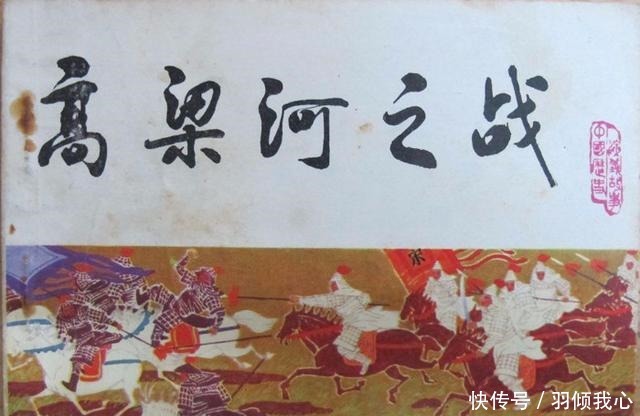 高梁河之战
中國歷史
演義故事
宋
快传号 / 羽倾我心